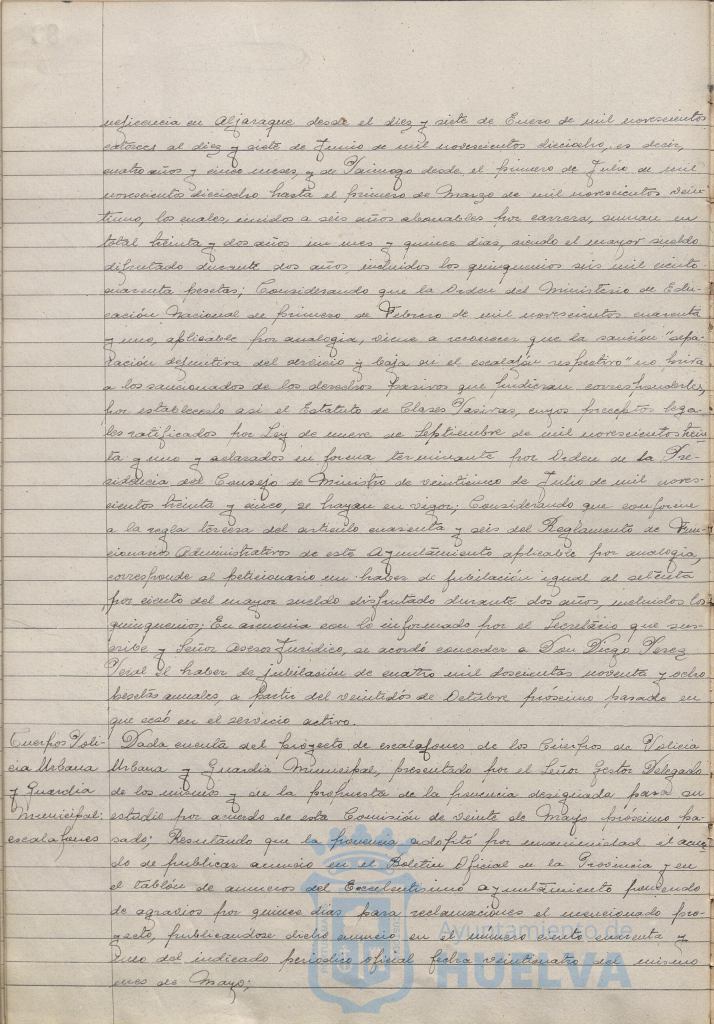 neficencia en Aljaraque desde el diez y siete de Enero de mil novescientos
catorce al diez y siete de Junio de mil novescientos dieciocho, es decir,
cuatro años y cinco meses, y de Paimogo desde el primero de Julio de mil
novescientos dieciocho hasta el primero de Marzo de mil novescientos vein-
tiuno, los cuales, unidos a seis años abonables por carrera, suman en
total treinta y dos años un mes y quince dias, siendo el mayor sueldo
disfrutado durante dos años, incluidos los quinquenios seis mil ciento
cuarenta pesetas; Considerando que la Orden del Ministerio de Edu-
cación Nacional de primero de Febrero de mil novescientos cuarenta
y uno, aplicable por analogia, viene a reconocer que la sanción "sepa-
ración definitiva del servicio y baja en el escalafón respectivo" no priva
a los sancionados de los derechos pasivos que pudieran corresponderles,
por establecerlo asi el Estatuto de Clases Pasivas, cuyos preceptos lega-
les ratificados por Ley de nueve de Septiembre de mil novescientos trein-
ta y uno y aclarados en forma terminante por Orden de la Pre-
sidencia del Consejo de Ministro de veinticinco de Julio de mil noves-
cientos treinta y cinco, se hayan en vigor; Considerando que conforme
a la regla tercera del articulo cuarenta y seis del Reglamento de Fun-
cionarios Administrativos de este Ayuntamiento aplicable por analogia,
corresponde al peticionario un haber de jubilación igual al setenta
por ciento del mayor sueldo disfrutado durante dos años, incluidos los
quinquenios; En armonia con lo informado por el Secretario que sus-
cribe y Señor Asesor Juridico, se acordó conceder a Don Diego Perez
Peral el haber de jubilación de cuatro mil doscientas noventa y ocho
pesetas anuales, a partir del veintidós de Octubre próximo pasado en
que cesó en el servicio activo.
Cuerpos Poli-
cia Urbana
y Guardia
Municipal:
escalafones
Dada cuenta del proyecto de escalafones de los Cuerpos de Policia
Urbana y Guardia Municipal, presentado por el Señor Gestor Delegado
de los mismos y de la propuesta de la ponencia designada para su
estudio por acuerdo de esta Comisión de veinte de Mayo próximo pa-
sado; Resultando que la ponencia adoptó por unanimidad el acuer-
do de publicar anuncio en el Boletin Oficial de la Provincia y en
el tablón de anuncios del Excelentisimo Ayuntamiento poniendo
de agravios por quince dias para reclamaciones el mencionado pro-
yecto, publicandose dicho anuncio en el número ciento cuarenta y
del indicado periodico oficial fecha veinticuatro del mismo
mes de Mayo;
Ayuntamiento de
HUELVA